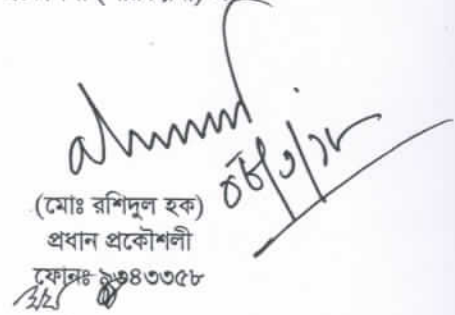 ০৮/৩/১৮
(মোঃ রশিদুল হক)
প্রধান প্রকৌশলী
ফোনঃ ৯৩৪৩৩৫৮